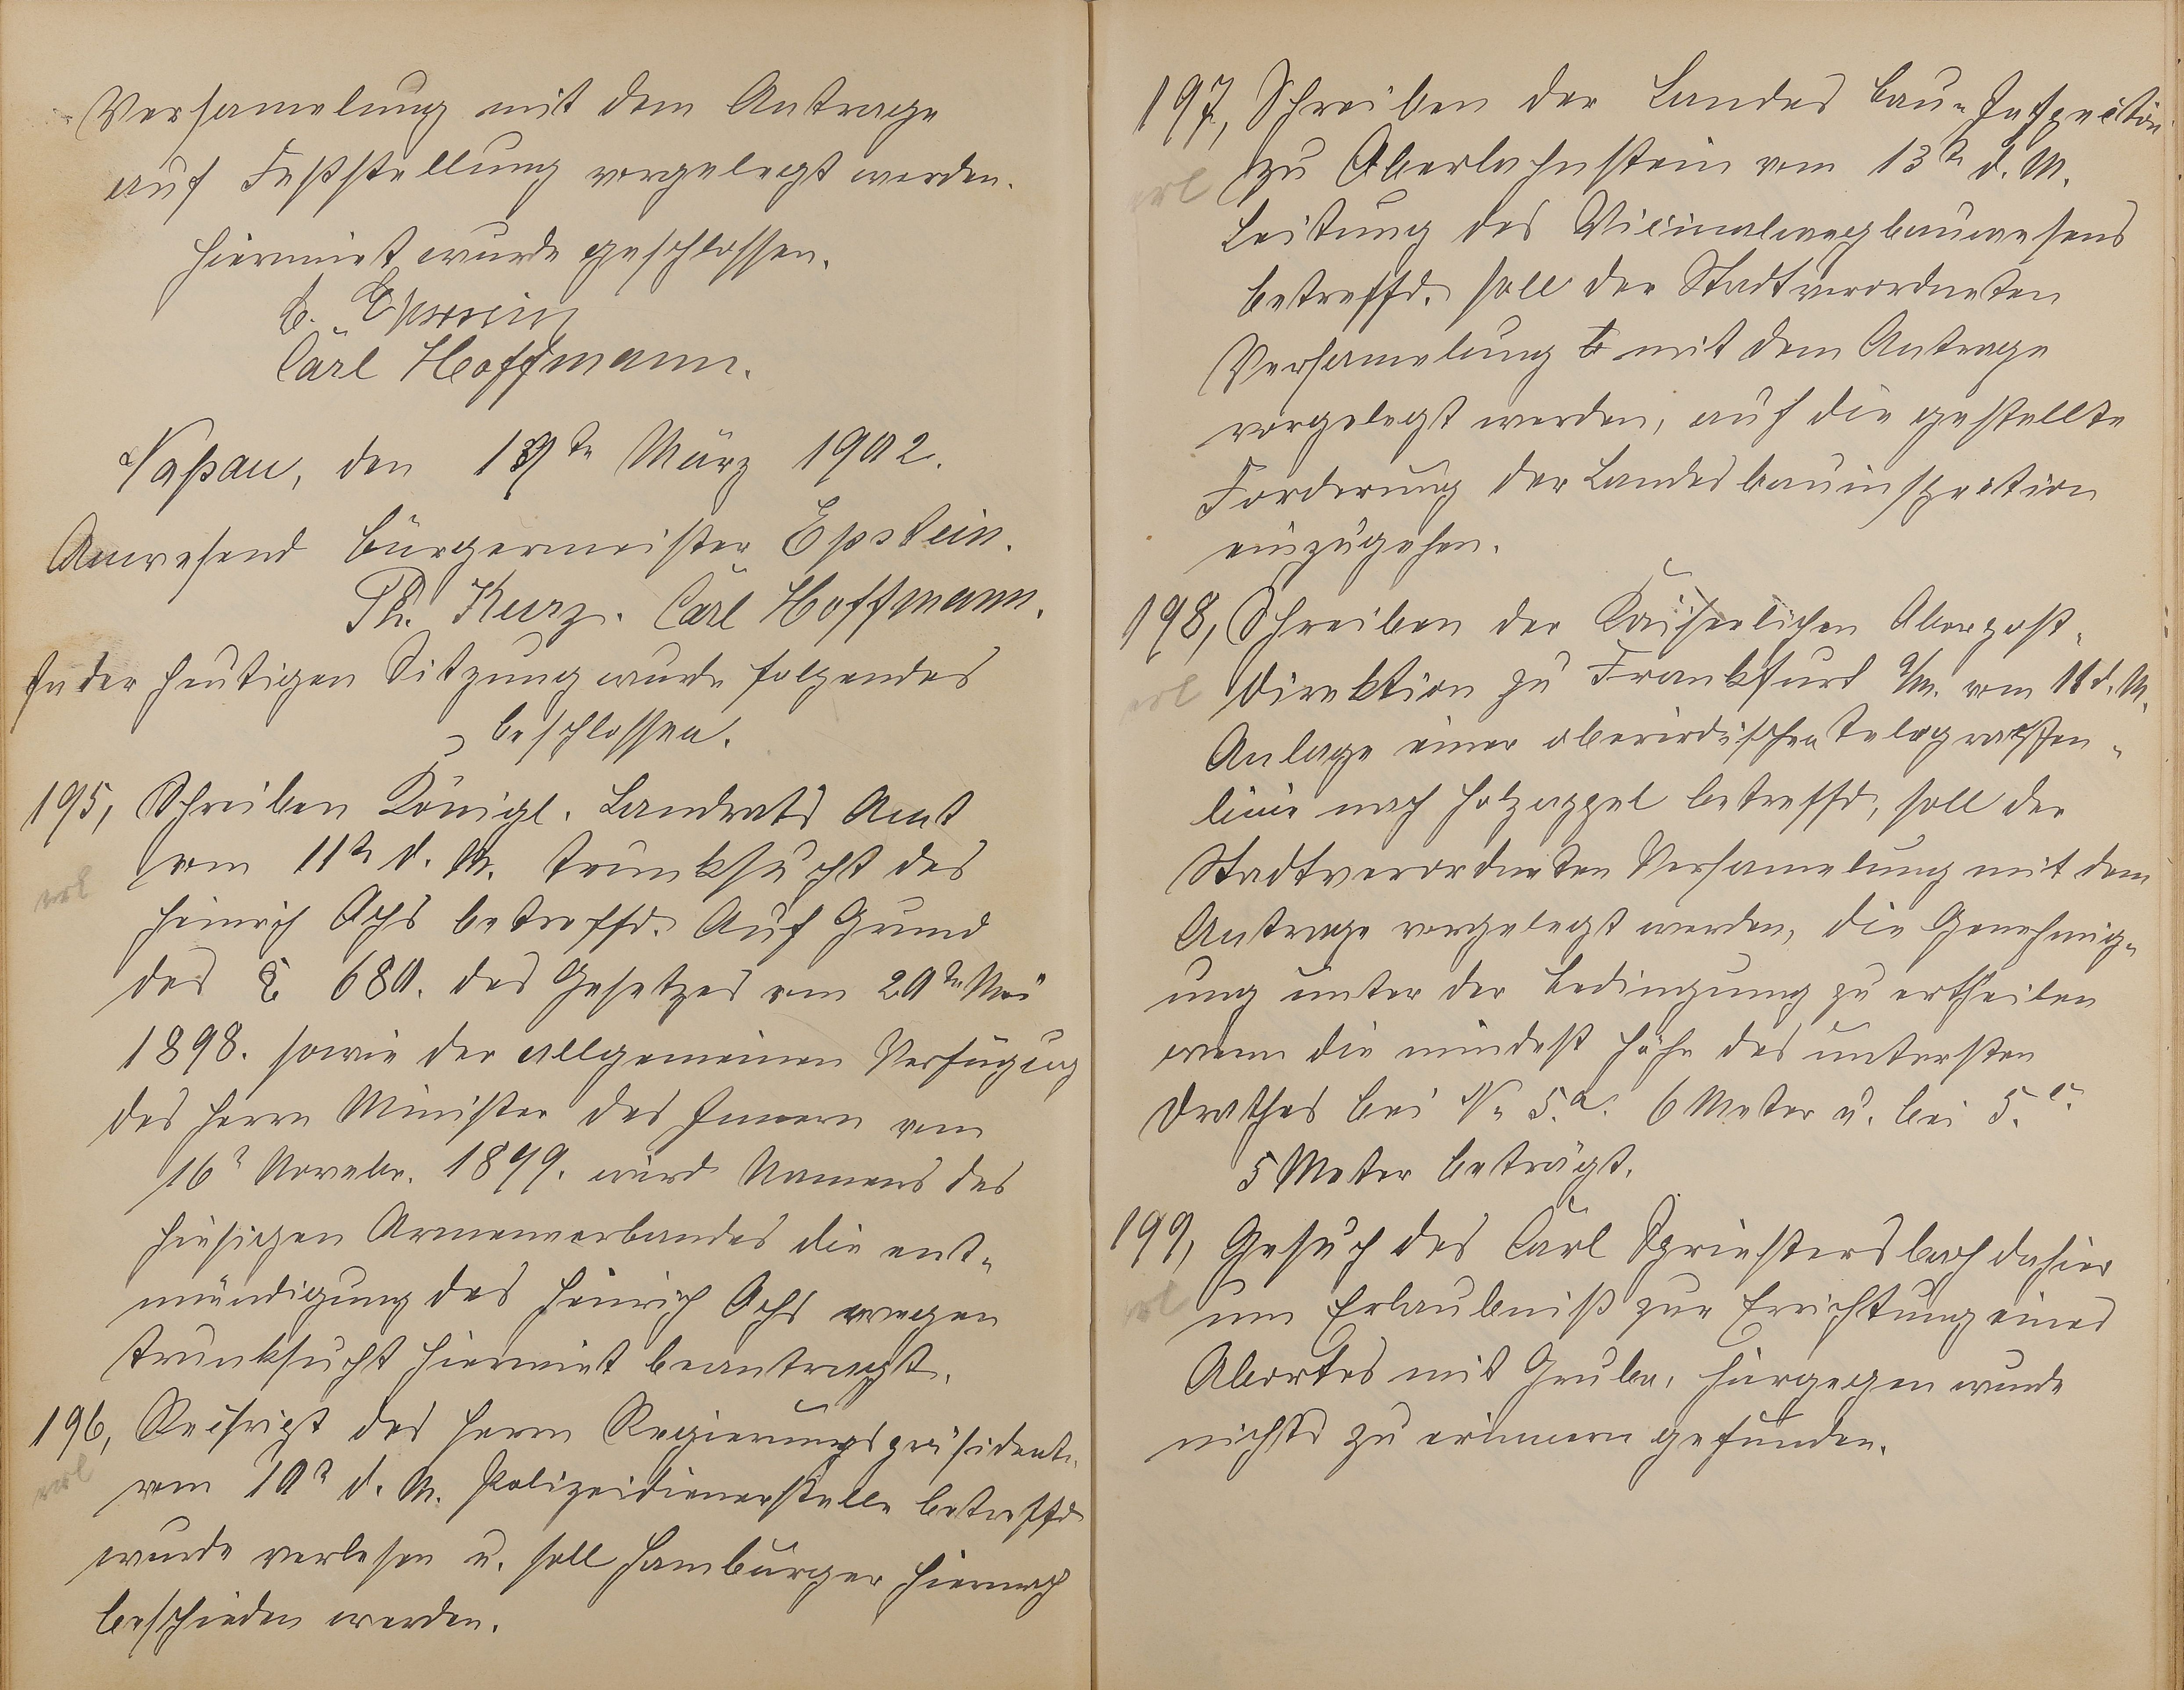 Versamelung mit dem Antrage
auf Feststellung vorgelegt werden.
Hiermiet wurde geschlossen.
Carl Hoffmann.
Naßau, den 17te März 1902.
Anwesend Bürgermeister Epstein.
Th. Kurz. Carl Hoffmann.
In der heutigen Sitzung wurde folgendes
beschlossen.
195, Schreiben Königl. Landrats Amt
erl vom 11te d. M. Trunksucht des
Heinrich Ochs betreffd. Auf Grund
des § 680. des Gesetzes vom 20te Mai
1898. sowie der allgemeinen Verfügung
des Herrn Minister des Innern vom
16t Novebr. 1899. wird Namens des
hiesigen Armenverbandes die ent-
mündigung des Heinrich Ochs wegen
Trunksucht hiermiet beantragt.
196, Reskript des Herrn Regierungspräsident.
erl vom 10t d. M. Polizeidienerstelle betreffd
wurde verlesen u. soll Hamburger hiernach
beschieden werden.
197, Schreiben der Landes Bau-Inspection
erl zu Oberlahnstein vom 13te d. M.
Leitung des Vicinalwegbauwesens
betreffd. soll der Stadtverordneten
Versamelung mit dem Antrage
vorgelegt werden, auf die gestellte
Forderung der Landesbauinspection
einzugehen.
198, Schreiben der Kaiserlichen Oberpost-
erl direktion zu Frankfurt a/M. vom 11 d. M.
Anlage einer oberirdischen Telegraphen-
linie nach Holzappel betreffd, soll der
Stadtverordneten Versamelung mit dem
Antrage vorgelegt werden, die Genehmig-
ung unter der Bedingung zu ertheilen
wenn die mindest Höhe des untersten
Drathes bei No 5.a. 6 Meter u. bei 5.c.
5 Meter beträgt.
199, Gesuch des Carl Spriestersbach dahier
erl um Erlaubniß zur Errichtung eines
Abortes mit Grube, hiergegen wurde
nichts zu erinnern gefunden.